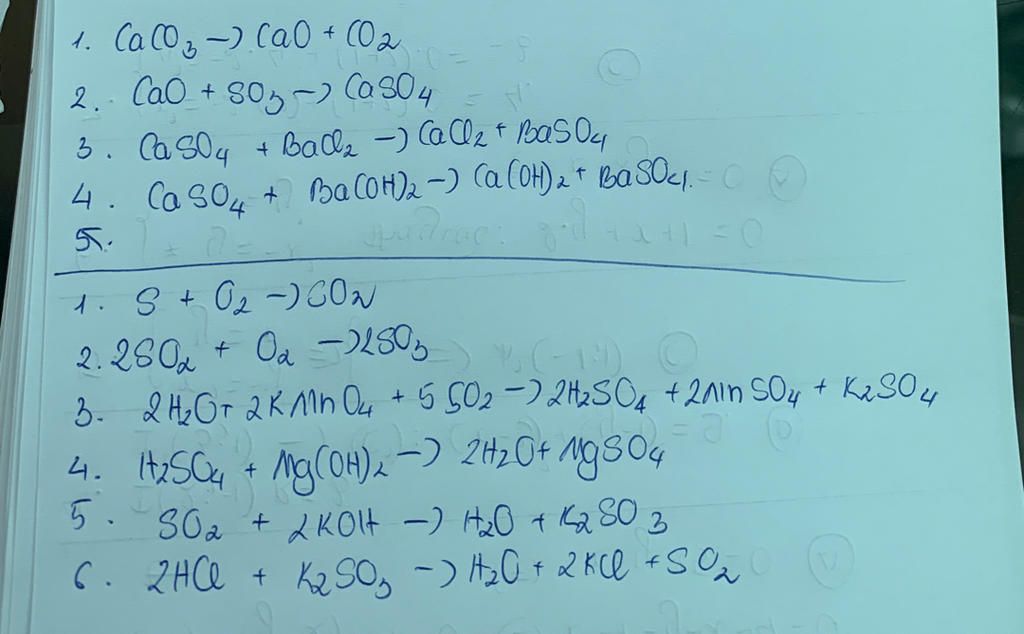 1. CaCO3 → CaO + CO2
2. CaO + SO3 → CaSO4
3. CaSO4 + BaCl2 → CaCl2 + BaSO4
4. CaSO4 + Ba(OH)2 → Ca(OH)2 + BaSO4.
5.
1. S + O2 → SO2
2. 2SO2 + O2 → 2SO3
3. 2H2O + 2KMnO4 + 5SO2 → 2H2SO4 + 2MnSO4 + K2SO4
4. H2SO4 + Mg(OH)2 → 2H2O + MgSO4
5. SO2 + 2KOH → H2O + K2SO3
6. 2HCl + K2SO3 → H2O + 2KCl + SO2